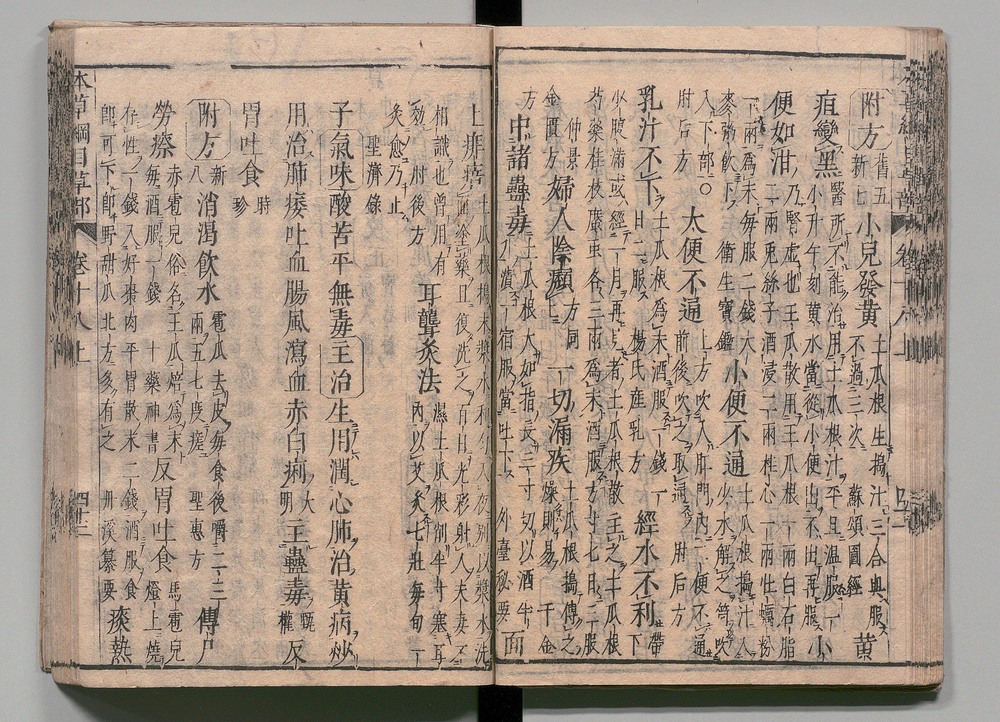 附方 舊五新七 小兒發黃 土瓜根生搗汁三合與服不過三次蘇頌圖經 黃
疸變黑 醫所不能治用土瓜根汁平旦溫服一小升午刻黃水當從小便出不出再服 小
便如泔 乃腎虛也王瓜散用王瓜根一兩白石脂二兩兔絲子酒浸二兩桂心一兩牡蠣粉
一兩為末每服二錢大麥粥飲下衛生寶鑑 小便不通 土瓜根搗汁入少水解之筒吹
入下部○肘后方 大便不通 上方吹入肛門內二便不通前後吹之取通肘后方
乳汁不下 土瓜根為末酒服一錢一日二服楊氏產乳方 經水不利 帶下
少腹滿或經一月再見者土瓜根散主之土瓜根芍藥桂枝䗪虫各三兩為末酒服方寸匕日三服
仲景金匱方 婦人陰㿗 方同上 一切漏疾 土瓜根搗傅之燥則易千金
方 中諸蠱毒 土瓜根大如指長三寸切以酒半升漬一宿服當吐下外臺秘要 面
上痱痦 土瓜根搗末漿水和勻入夜別以漿水洗面塗藥旦復洗之百日光彩射人夫妻不
相識也曾用有效肘後方 耳聾灸法 濕土瓜根削半寸塞耳內以艾灸七壯每旬一
灸愈乃止聖濟錄
子氣味酸苦平無毒主治生用潤心肺治黃病炒
用治肺痿吐血腸風瀉血赤白痢 大明 主蠱毒 甄權 反
胃吐食 時珍
附方 新八 消渴飲水 雹瓜去皮每食後嚼二三兩五七度瘥聖惠方 傳尸
勞瘵 赤雹兒俗名王瓜焙為末每酒服一錢十藥神書 反胃吐食 馬雹兒燈上燒
存性一錢入好棗肉平胃散末二錢酒服食即可下即野甜瓜北方多有之丹溪纂要 痰熱
本草綱目草部 卷十八上 四十三